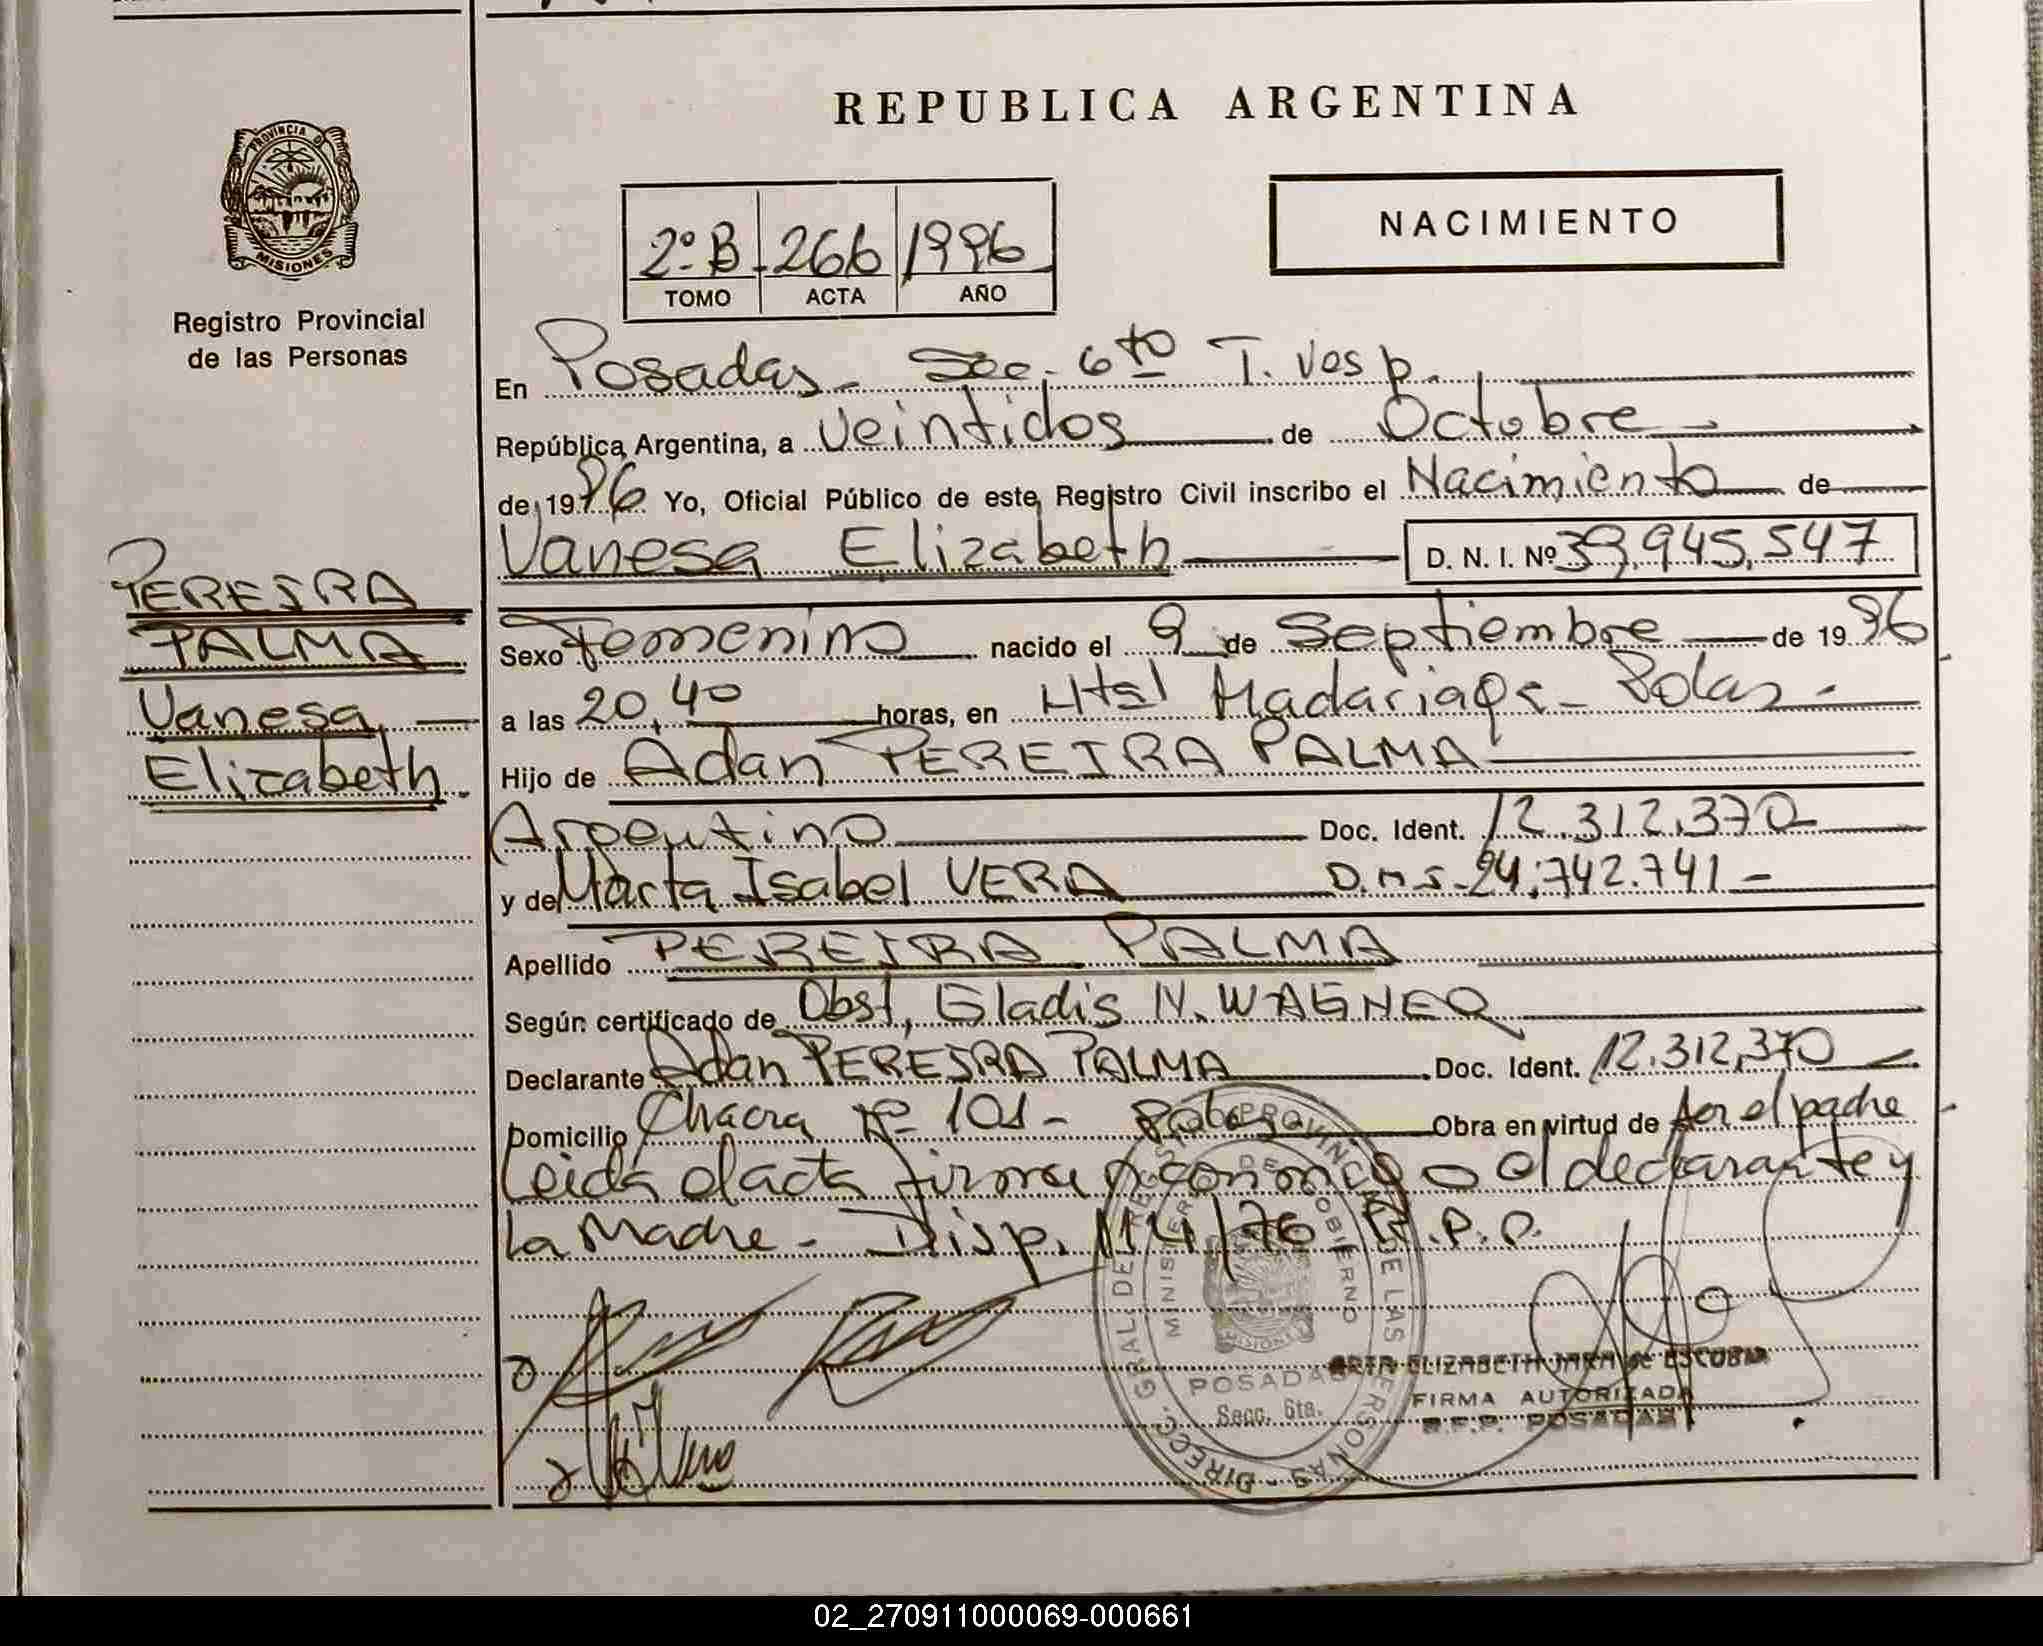 REPUBLICA ARGENTINA
PROVINCIA DE
MISIONES
Registro Provincial
de las Personas
NACIMIENTO
2º B 266 1996
TOMO ACTA AÑO
En Posadas - Sec. 6to T. Vesp.
República Argentina, a veintidos de Octubre
de 1996 Yo, Oficial Público de este Registro Civil inscribo el Nacimiento de
Vanesa Elizabeth D. N. I. Nº 39,945,547
PEREIRA
PALMA
Vanesa
Elizabeth.
Sexo Femenino nacido el 9 de Septiembre de 1996
a las 20,40 horas, en Htal Madariaga - Pdas -
Hijo de Adan PEREIRA PALMA
Argentino Doc. Ident. 12.312.370
y de Marta Isabel VERA D.N.I. 24.742.741 -
Apellido PEREIRA PALMA
Según certificado de Obst, Gladis N. WAGNER
Declarante Adan PEREIRA PALMA Doc. Ident. 12.312,370
Domicilio Chacra Nº 101 - Pdas Obra en virtud de ser el padre
Leida el acta firma conmigo el declarante y
la Madre - Disp. 114/76 R.P.P.
DIREC. GRAL. DE REG. PROVINCIAL DE LAS PERSONAS
MINISTERIO DE GOBIERNO
MISIONES
POSADAS
Secc. 6ta.
ELIZABETH JARA de ESCOBAR
FIRMA AUTORIZADA
R.P.P. POSADAS
02_270911000069-000661